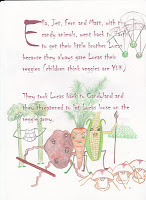 Ella, Jet, Fern and Matt, with the
candy animals, went back to Earth
to get their little brother Lucas
because they always gave Lucas their
veggies (children think veggies are YUK.)
They took Lucas back to Candyland and
they threatened to let Lucas loose on the
veggie army.